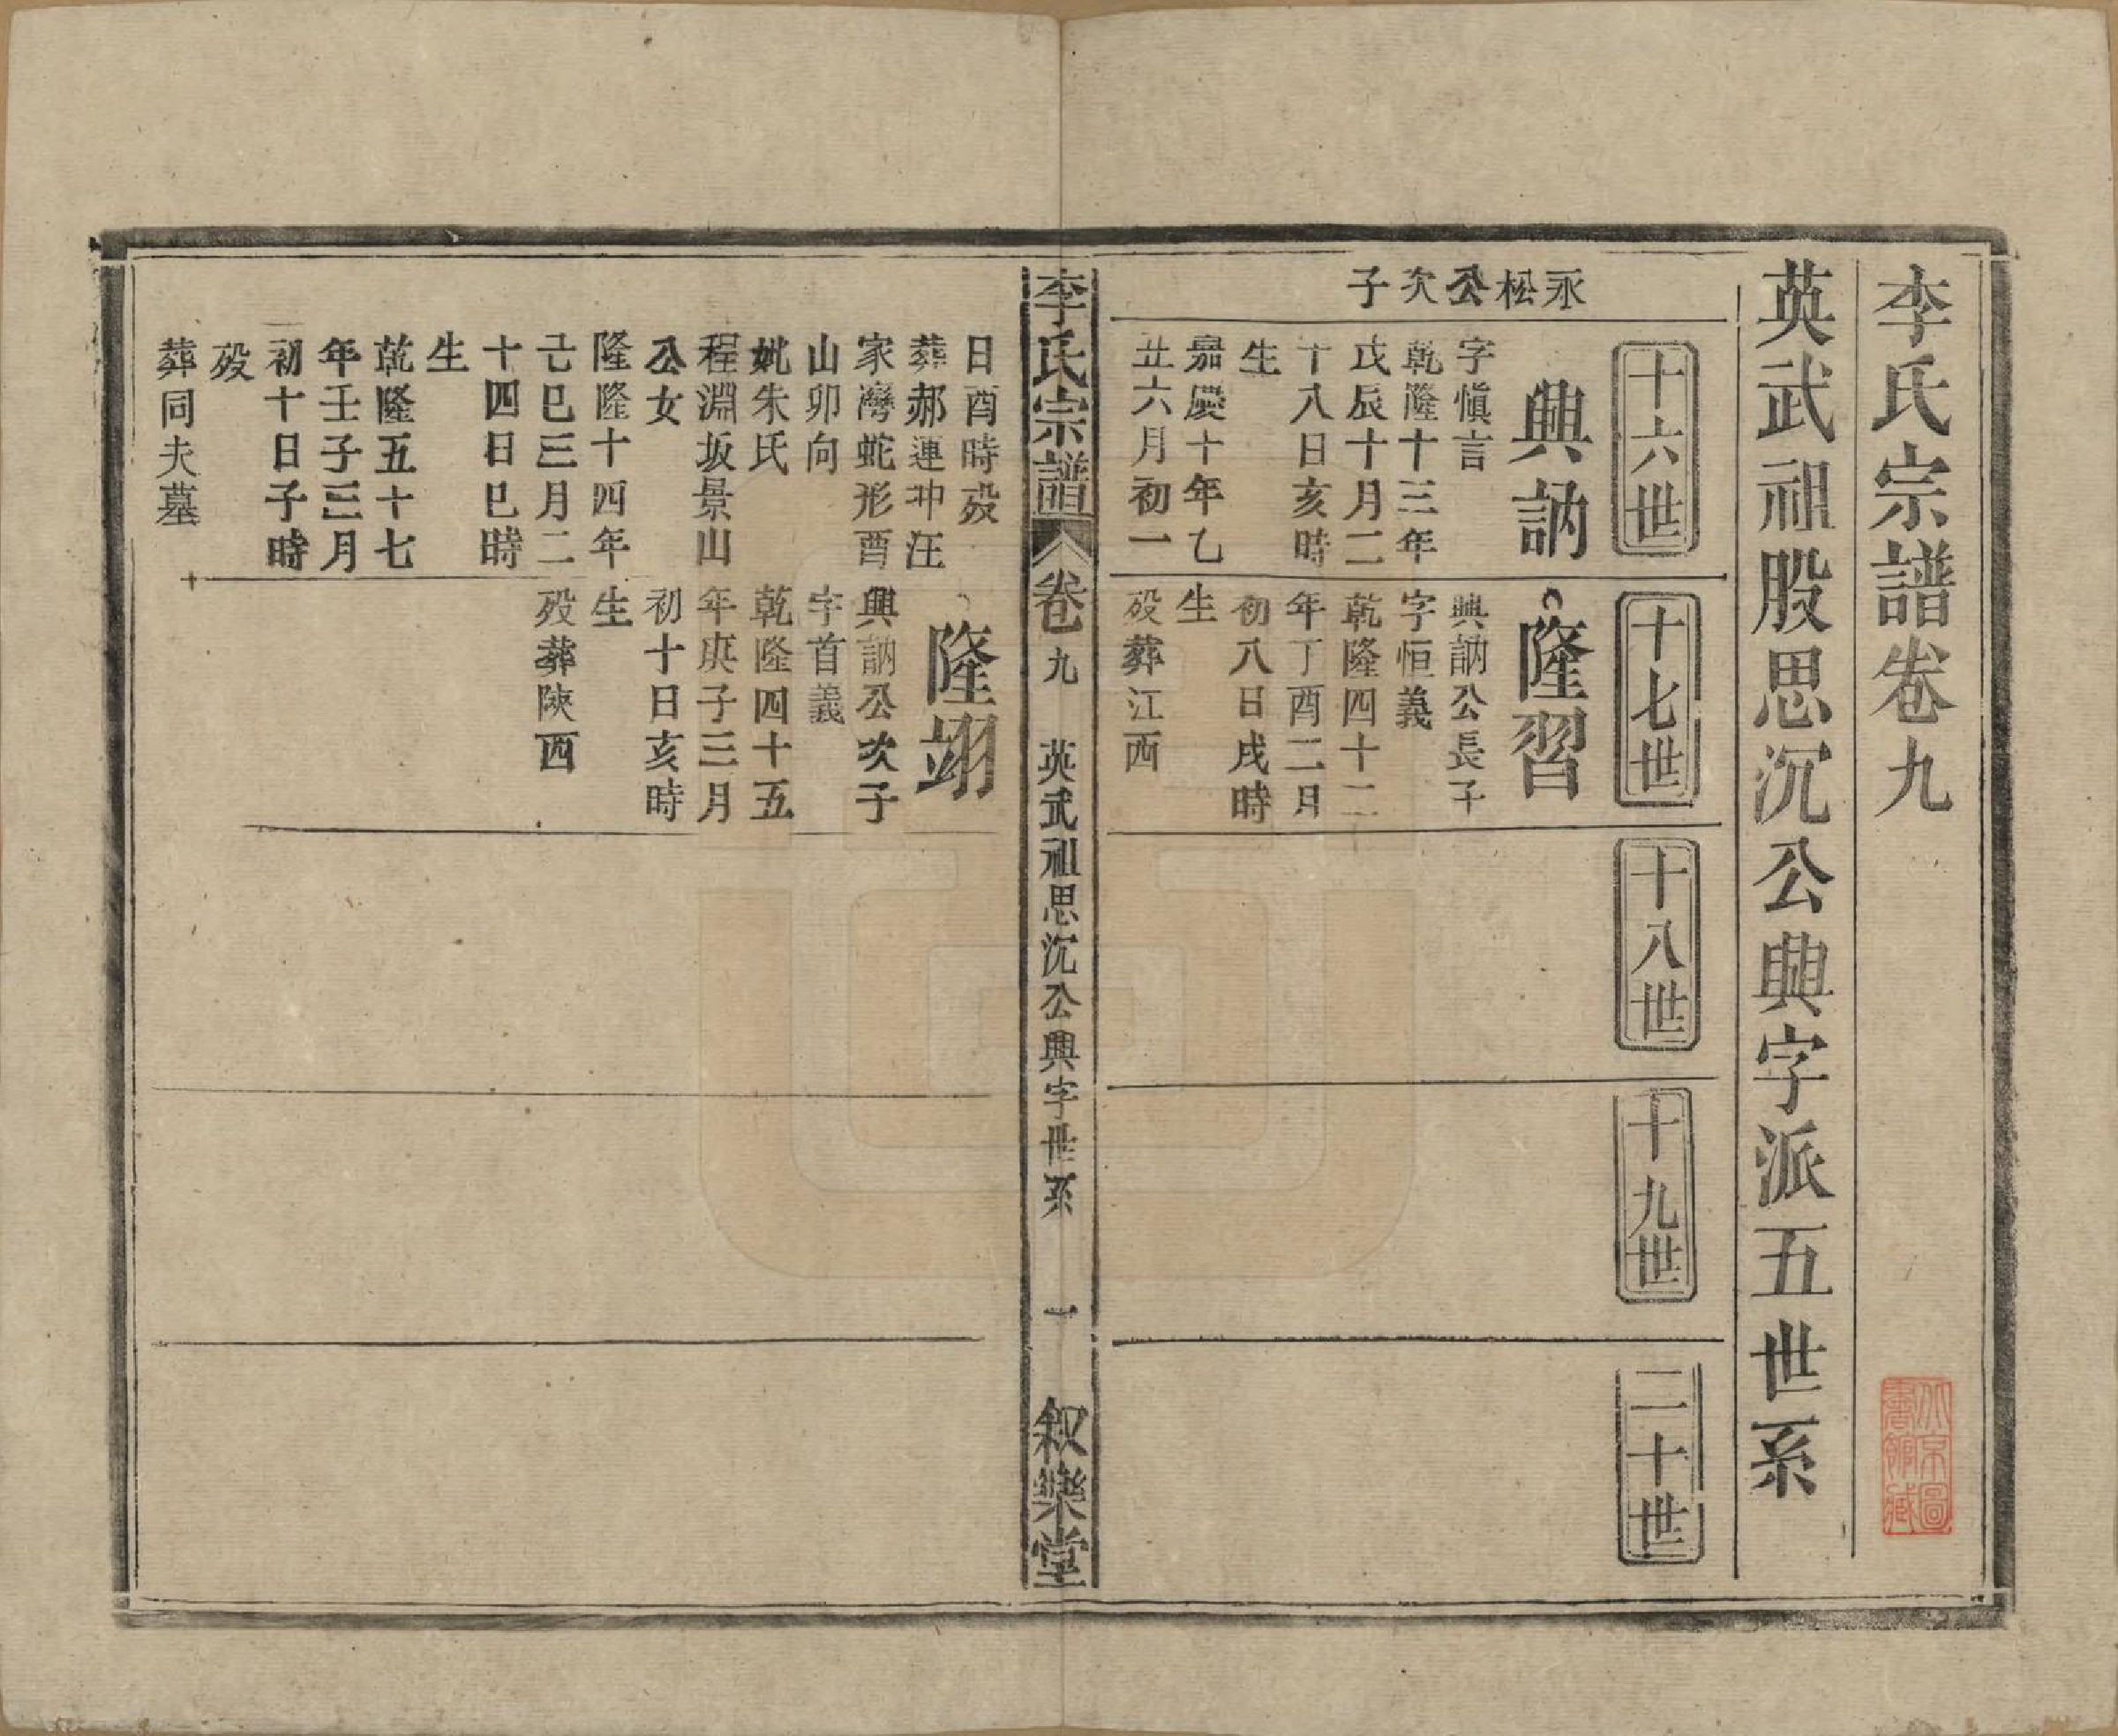 李氏宗譜卷九
英武祖股思沉公興字派五世系
十六世
十七世
十八世
十九世
二十世
永松公次子
興訥
字愼言
乾隆十三年
戊辰十月二
十八日亥時
生
嘉慶十年乙
丑六月初一
隆習
興訥公長子
字恒義
乾隆四十二
年丁酉二月
初八日戌時
生
歿葬江西
李氏宗譜
卷九
英武祖思沉公興字世系
一
叙樂堂
日酉時歿
葬郝連冲汪
家灣蛇形酉
山卯向
妣朱氏
程淵坂景山
公女
隆隆十四年
己巳三月二
十四日巳時
生
乾隆五十七
年壬子三月
初十日子時
歿
葬同夫墓
隆翊
興訥公次子
字首義
乾隆四十五
年庚子三月
初十日亥時
生
歿葬陝西
北京圖
書館藏